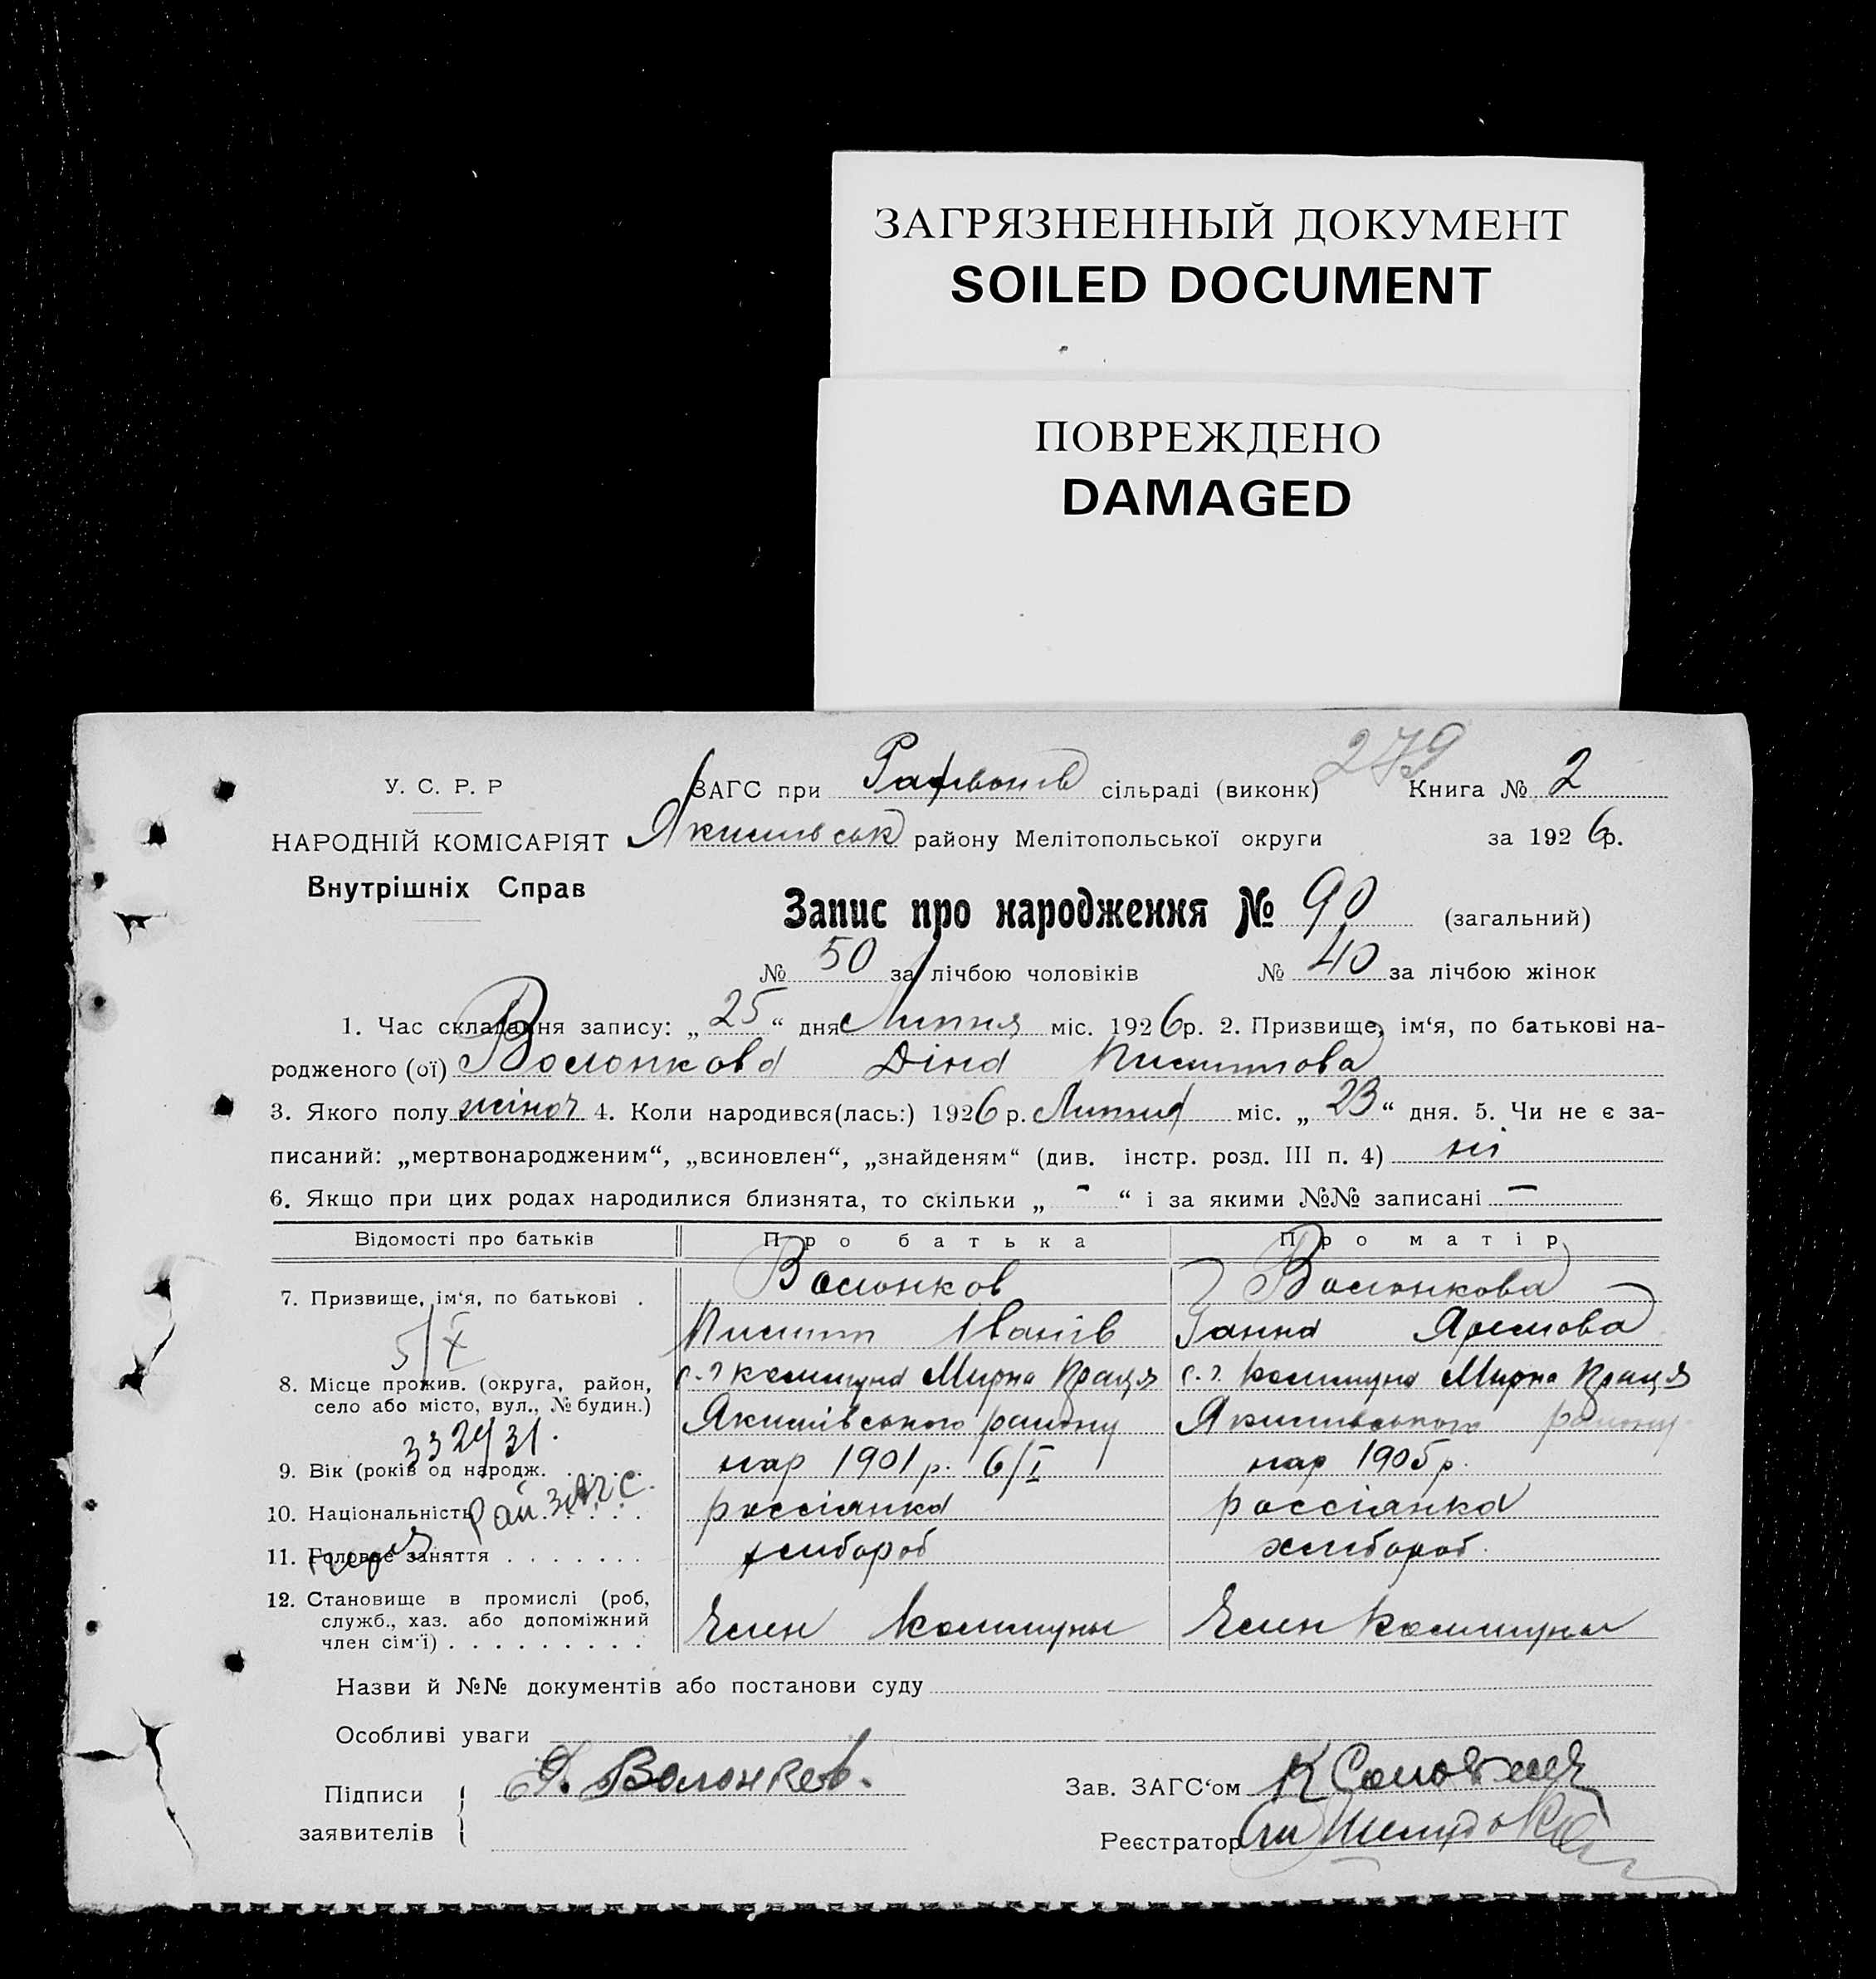 ЗАГРЯЗНЕННЫЙ ДОКУМЕНТ
SOILED DOCUMENT
ПОВРЕЖДЕНО
DAMAGED
279
У. С. Р. Р
ЗАГС при сільраді (виконк) Книга № 2
НАРОДНІЙ КОМІСАРІЯТ району Мелітопольської округи за 1926р.
Внутрішніх Справ
Запис про народження № 90 (загальний)
№ 50 за лічбою чоловіків № 40 за лічбою жінок
1. Час складання запису: „25“ дня Липня міс. 1926р. 2. Призвище, ім‘я, по батькові на-
родженого (ої) Волонкова Діна
3. Якого полу жіноч 4. Коли народився(лась:) 1926р. Липня міс. „23“ дня. 5. Чи не є за-
писаний: „мертвонародженим“, „всиновлен“, „знайденям“ (див. інстр. розд. III п. 4) ні
6. Якщо при цих родах народилися близнята, то скільки „ - “ і за якими №№ записані —
Відомості про батьків Про батька Про матір
7. Призвище, ім‘я, по батькові . Волонков Волонкова
Іванів Ганна Яремова
5/X
8. Місце прожив. (округа, район, с.г коммуна Мирна Праця с.г. коммуна Мирна Праця
село або місто, вул., № будин.) Якимівського району Якимівського району
332/31.
9. Вік (років од народж. нар 1901 р. 6/I нар 1905 р.
Рай ЗАГС.
10. Національність россіянка россіянка
11. Головне заняття хлібороб хлібороб
12. Становище в промислі (роб, Член коммуны Член коммуны
служб., хаз. або допоміжний
член сім‘ї)
Назви й №№ документів або постанови суду
Особливі уваги
Підписи Волонков. Зав. ЗАГС‘ом
заявителів Реєстратор